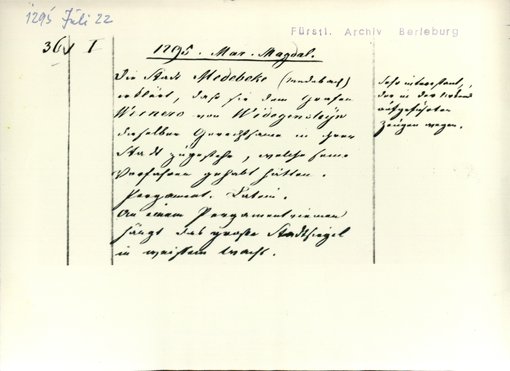 1295 Juli 22
Fürstl. Archiv Berleburg
36 I
1295. Mar. Magdal.
Die Stadt Medebeke (Medebach)
erklärt, daß sie dem Grafen
Werners von Widegensteyn
dieselben Gerechtsame in ihrer
Stadt zugestehe, welche seine
Vorfahren gehabt hätten.
Pergament. Latein.
An einem Pergamentriemen
hängt das große Stadtsiegel
in weißem Wachs.
Sehr interessant,
der in der
aufgeführten
Zeugen wegen.